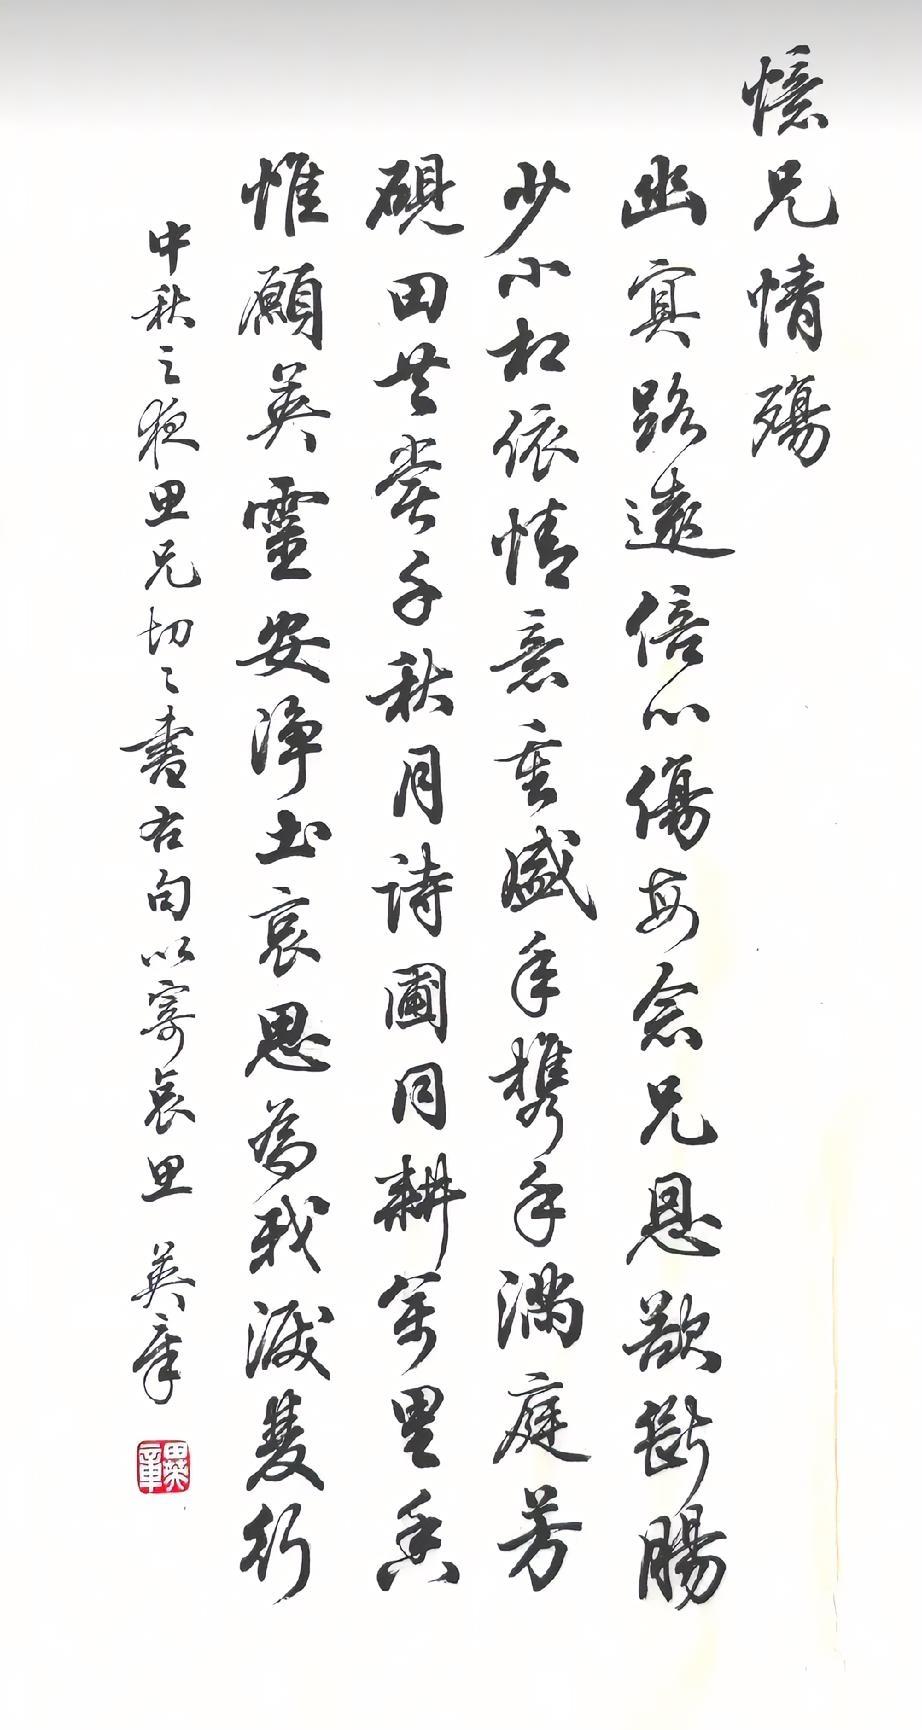 憶兄情殤
幽冥路遠倍心傷每念兄恩欲斷腸
少小相依情意重盛年携手滿庭芳
硯田共賞千秋月詩圃同耕萬里香
惟願英靈安淨土哀思為我淚雙行
中秋之夜思兄切々書右句以寄哀思 英章
田英章